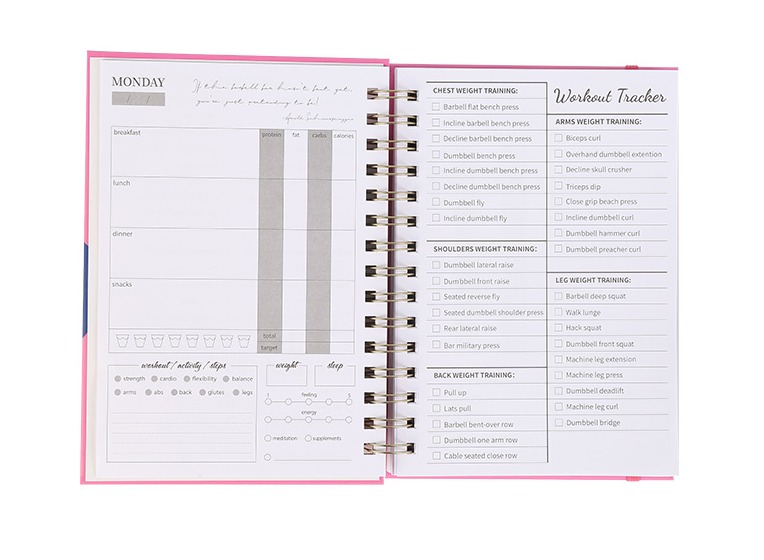 MONDAY
If this
you're just pretending to be!
breakfast
protein fat carbs calories
lunch
dinner
snacks
total
target
workout / activity / steps
strength cardio flexibility balance
arms abs back glutes legs
weight sleep
1 feeling 5
energy
meditation supplements
CHEST WEIGHT TRAINING:
Barbell flat bench press
Incline barbell bench press
Decline barbell bench press
Dumbbell bench press
Incline dumbbell bench press
Decline dumbbell bench press
Dumbbell fly
Incline dumbbell fly
SHOULDERS WEIGHT TRAINING:
Dumbbell lateral raise
Dumbbell front raise
Seated reverse fly
Seated dumbbell shoulder press
Rear lateral raise
Bar military press
BACK WEIGHT TRAINING:
Pull up
Lats pull
Barbell bent-over row
Dumbbell one arm row
Cable seated close row
Workout Tracker
ARMS WEIGHT TRAINING:
Biceps curl
Overhand dumbbell extention
Decline skull crusher
Triceps dip
Close grip beach press
Incline dumbbell curl
Dumbbell hammer curl
Dumbbell preacher curl
LEG WEIGHT TRAINING:
Barbell deep squat
Walk lunge
Hack squat
Dumbbell front squat
Machine leg extension
Machine leg press
Dumbbell deadlift
Machine leg curl
Dumbbell bridge